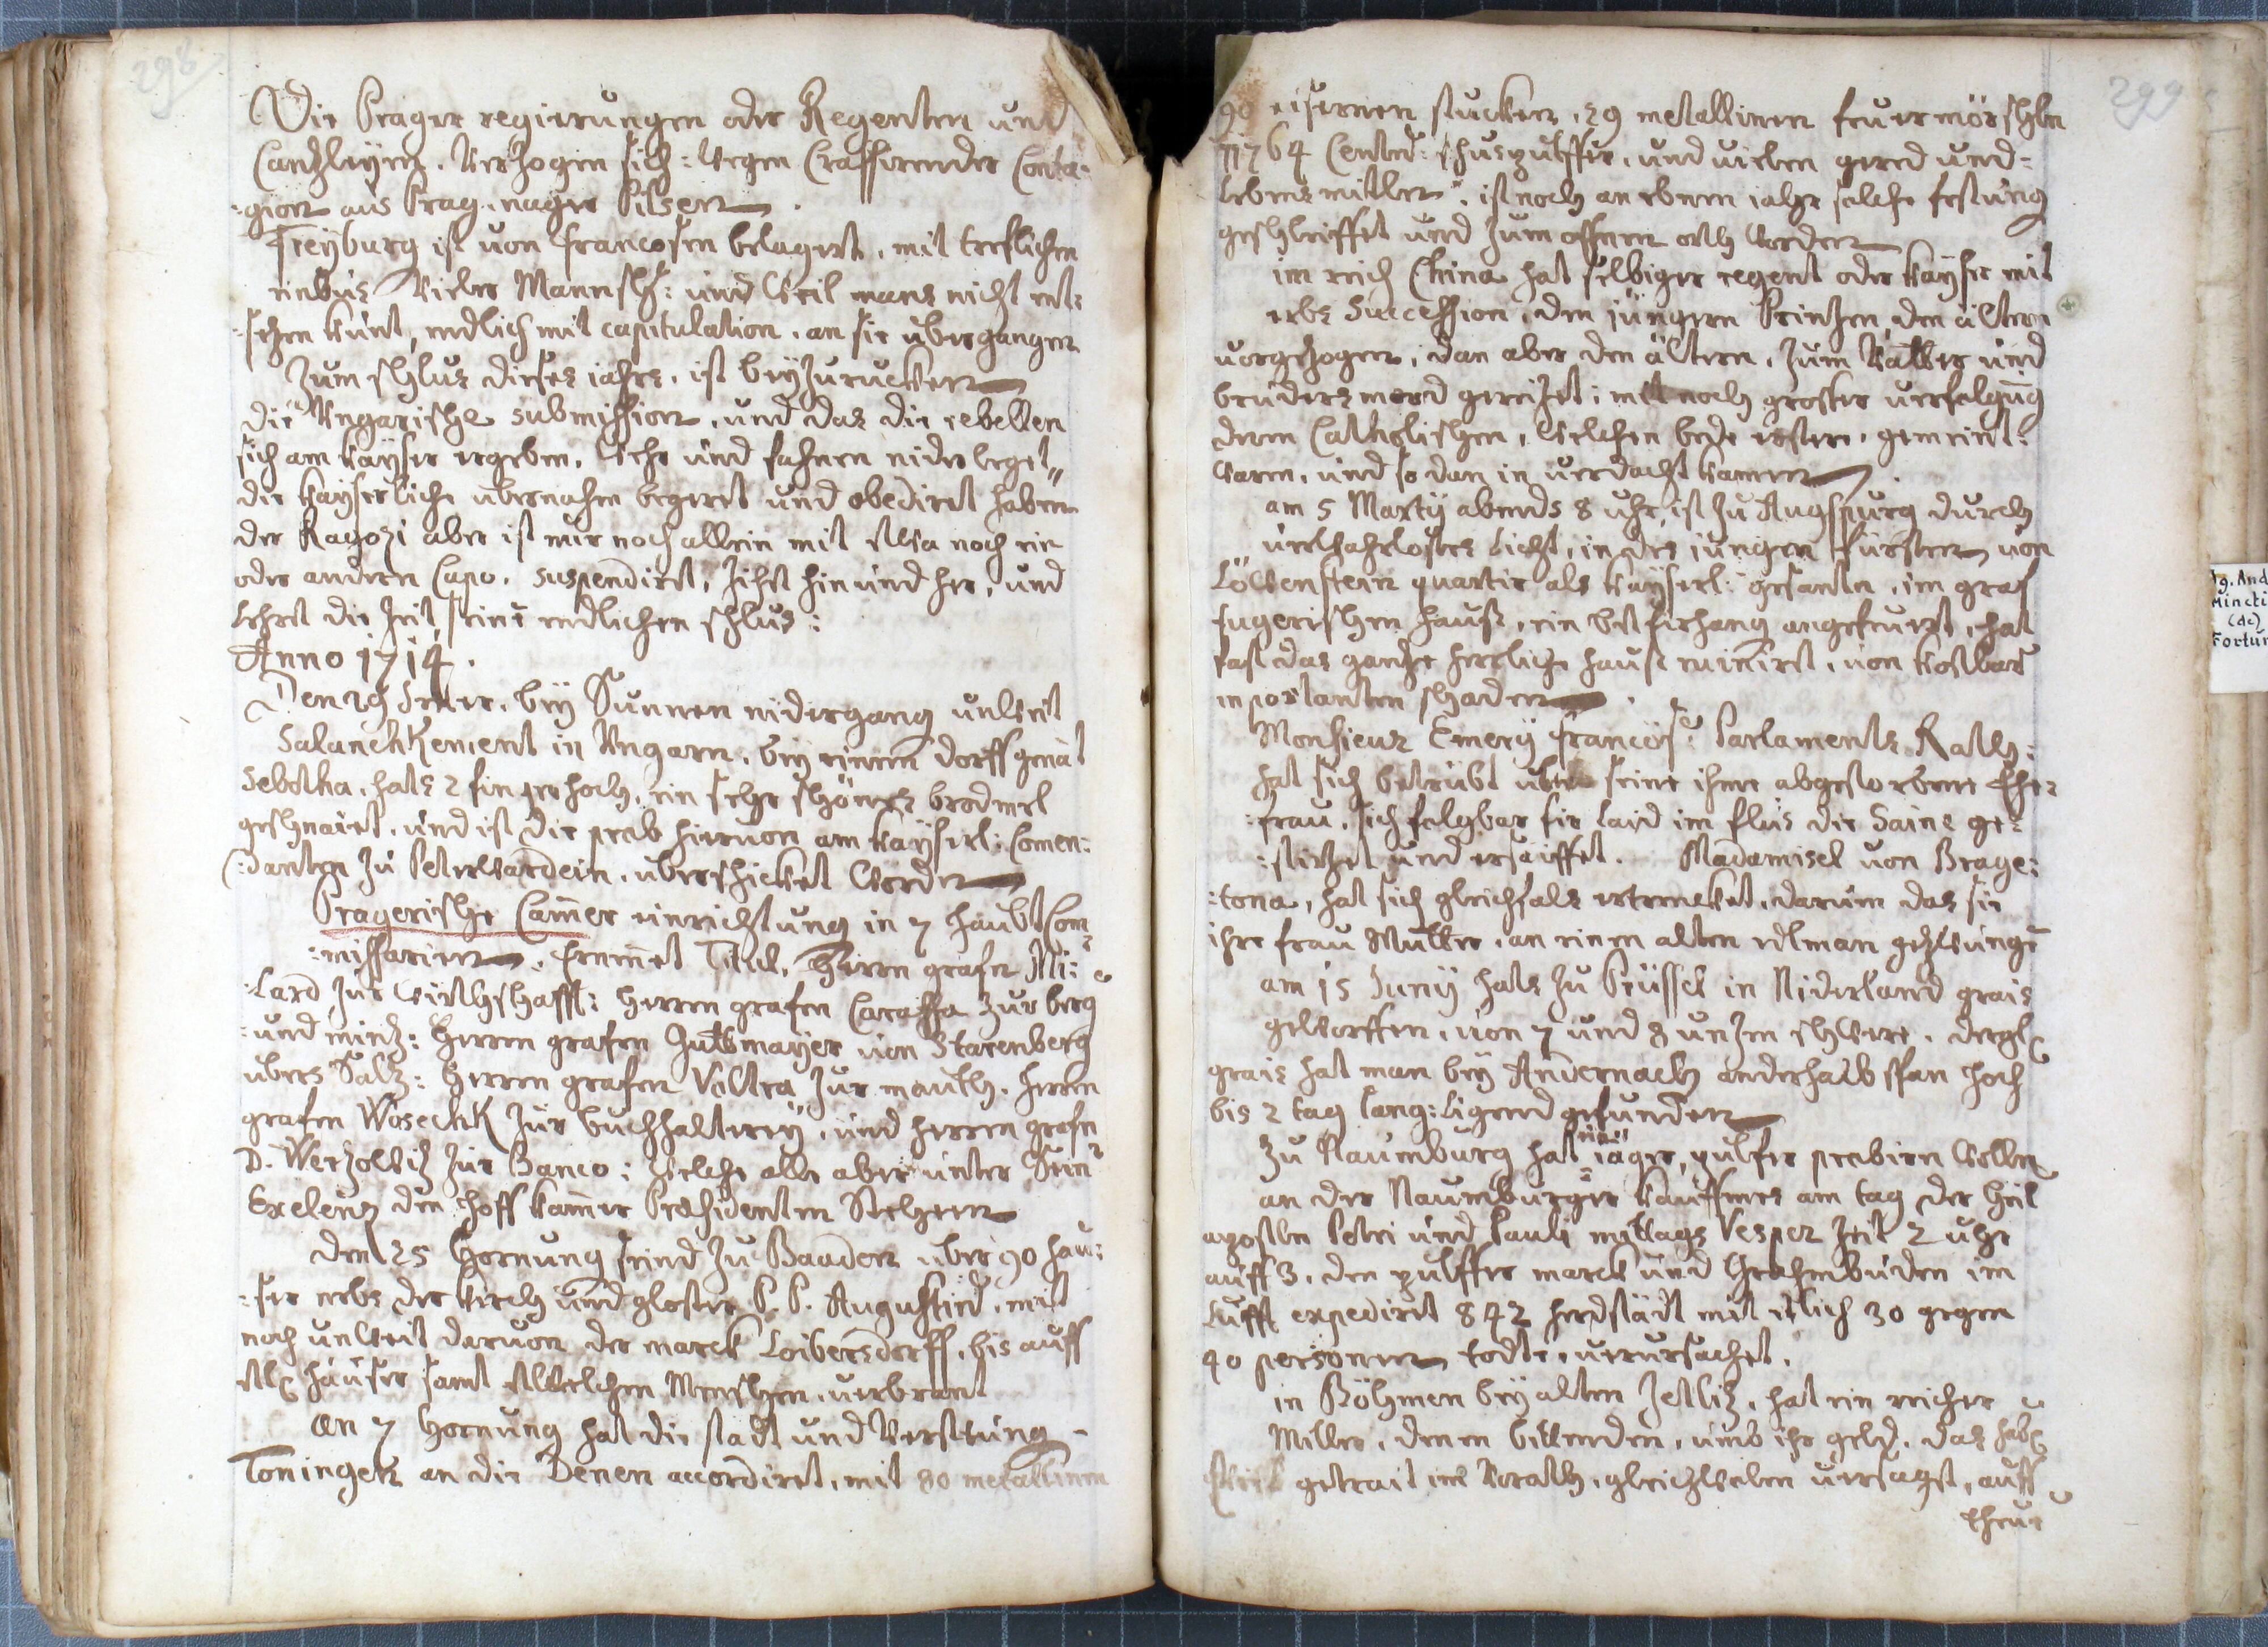 298
Die Prager regierungen oder Regenten und
Cantzleyen. Verzogen sich: wegen Crassirender Conta-
:gion aus Prag. nager Pilsen.
Freyburg ist von francosen belagert, mit treflichen
einbus viler Mannsch: und weil mans nicht ent:
:sehen kunt, endlich mit capitulation. an sie ubergangen
Zum schlus dieses jahrs. ist beyzurucken
die Ungarische submission, und das die rebellen
sich am kayser ergeben. wehr und fahnen nider legel"
die kayserliche ubernahm begeret und obedirt haben
der Ragozi aber ist nur noch allein mit etwa noch ein
oder andern Capo. suspendirt, zihet hin und her, und
lehrt die Zeit, seine endlichen schlus:
Anno 1714.
Den 29 Jener. bey Sunnen nidergang unweit
SalanchKement in Ungarn. bey einem dorff genāt
Sebotha. hats 2 finger hoch, ein sehr schönes brodmel
geschneiet. und ist die prob hiervon am kayserl: Comen:
:danten zu Peterwardein. uberschicket worden
Pragerische Camer einrichtung in 7 haubt Com:
:missarien. Titul. Herrn grafen Mi:
:lard zur wirthschafft: herrn grafen Caraffa zur berg
:und mintz: Herrn grafen Jultmayer von Starenberg
ubers Saltz: Herrn grafen Voltra zur mauth. herrn
grafen WosechK zur buchhalterey, und herrn grafen
D. Werzowitz zur Banco: welche alle aber unter Sein
Exelentz den hoff kamer Præsidenten stehen
den 25 Hornung seind zu Baaden uber 90 heu:
:ser nebs der kirch und gloster P. P. Augustin. mit
noch unweit darvon der marck Loibersdorff, bis auff
etl: häuser samt etwelchen Menschen. verbrant
An 7 Hornung hat die stadt und verstung
Toningen an die Denen accordirt, mit 90 metallinen
299
99 eisernen stucken, 29 metallinen feuermörschlen
11764 Centn: schuspulffer, und vielen gered und:
lebensmittlen. ist noch an ebnem jahr solche festung
geschleiffet und zum offnen orth worden
im reich China hat selbiger regent oder kayser mit
erbs Succession, den jungern Printzen, den ältern
vorgezogen, dan aber den ältern. zum Vatter und
brudersmord gereitzet; mit noch groster verfolgung
deren Catholischen, welchen bede erstere. gemeint:
waren, und so dan in verdacht kamen.
am 5 Martÿ abends 8 uhr, ist zu Augspurg durch
verwahrlostes licht, in des jungen fürsten von
Löwenstein quartir als kayserl: gesanten, im graf
fugerischen hauß, ein bet firhang angefeuret, hat
fast das gantze herrliche hauß ruinirt. von kostbar
inportanten schaden.
Monsieur Emerÿ francös: Parlaments Rath:
hat sich betrübt uber seine ihme abgestorbene Ehe:
:frau. sich folgbar fir laid im flus die Saine ge:
:stirtzet und ersäuffet. Madamisel von Brage:
:tona, hat sich gleichfals ertrencket. darum das sie
ihre frau Mutter. an einen alten edlman gezwungē
am 15 Junÿ hats zu Brüssel in Niderland grais
geworffen, von 7 und 8 untzen schwere. dergl:
grais hat man bey Andernach anderhalb span hoch
bis 2 tag lang: ligend gefunden
Zu Naumburg hat ein jäger, pulfer probirn wollen
an der Naumburger kauffmes am tag der heil
apostlen Petri und Pauli mittags Vesper Zeit 2 uhr
auff 3. den pulffer marck und Grahmbuden im
lufft expedirt 842 herdstädt mit etlich 30 gegen
40 personen todt. verursachet.
in Böhmen bey alten Zetlitz. hat ein reicher
Miller. denen bittenden, umb ihr geld. das hab:
getrait im Vorath. gleichwolen versagt, auff
theue